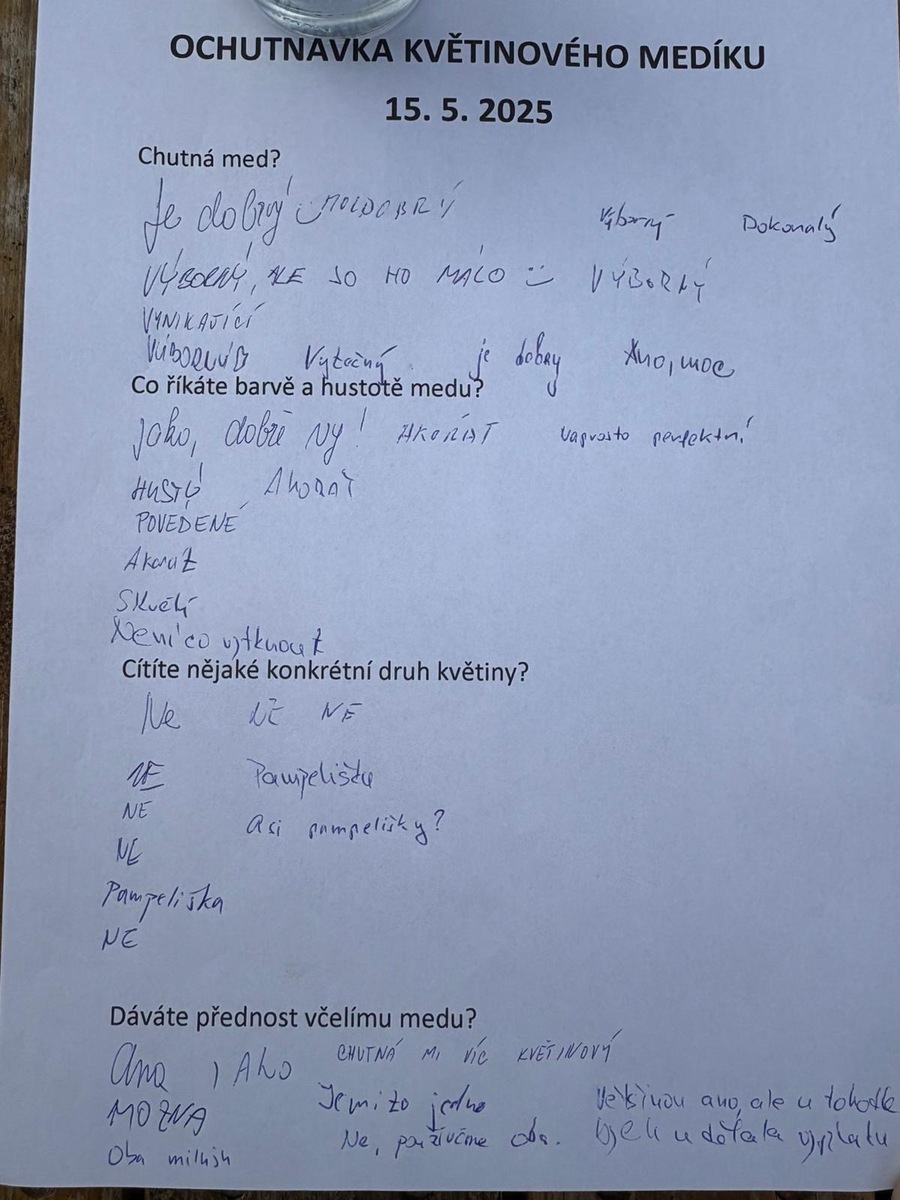 OCHUTNÁVKA KVĚTINOVÉHO MEDÍKU
15. 5. 2025
Chutná med?
Je dobrý MOCDOBRÝ Výborný Dokonalý
VÝBORNÝ, ALE JO HO MÁLO :) VÝBORNÝ
VYNIKAJÍCÍ
Výtečný je dobry Ano, moc
Co říkáte barvě a hustotě medu?
Jako, dobře ny! AKORÁT naprosto perfektní
HUSTÝ AKORÁT
POVEDENÉ
Akorát
Skvělí
Není co vytknout
Cítíte nějaké konkrétní druh květiny?
Ne NE NE
NE Pampelišku
NE Asi pampelišky?
NE
Pampeliška
NE
Dáváte přednost včelímu medu?
Ano CHUTNÁ MI VÍC KVĚTINOVÝ
MOŽNA Je mi to jedno Většinou ano, ale u tohotle
Oba miluju Ne, používáme oba.